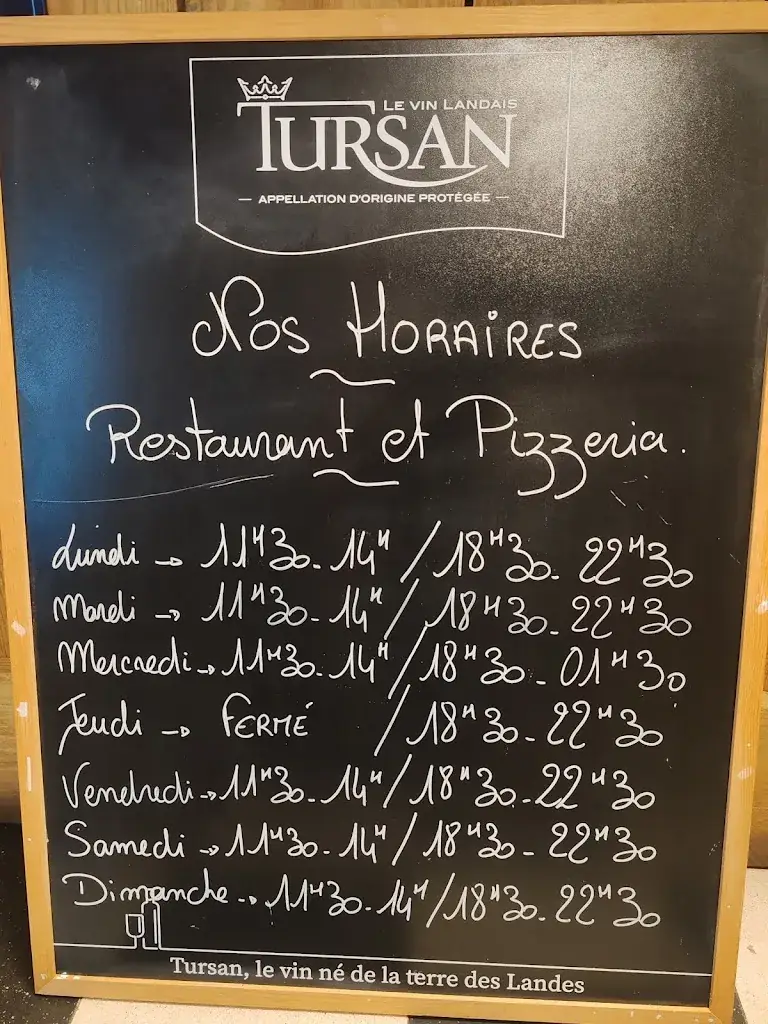 LE VIN LANDAIS
TURSAN
— APPELLATION D'ORIGINE PROTÉGÉE —
Nos HORAIRES
~
Restaurant et Pizzeria.
~
Lundi → 11H30 - 14H / 18H30 - 22H30
Mardi → 11H30 - 14H / 18H30 - 22H30
Mercredi → 11H30 - 14H / 18H30 - 01H30
Jeudi → FERMÉ / 18H30 - 22H30
Vendredi → 11H30 - 14H / 18H30 - 22H30
Samedi → 11H30 - 14H / 18H30 - 22H30
Dimanche → 11H30 - 14H / 18H30 - 22H30
Tursan, le vin né de la terre des Landes